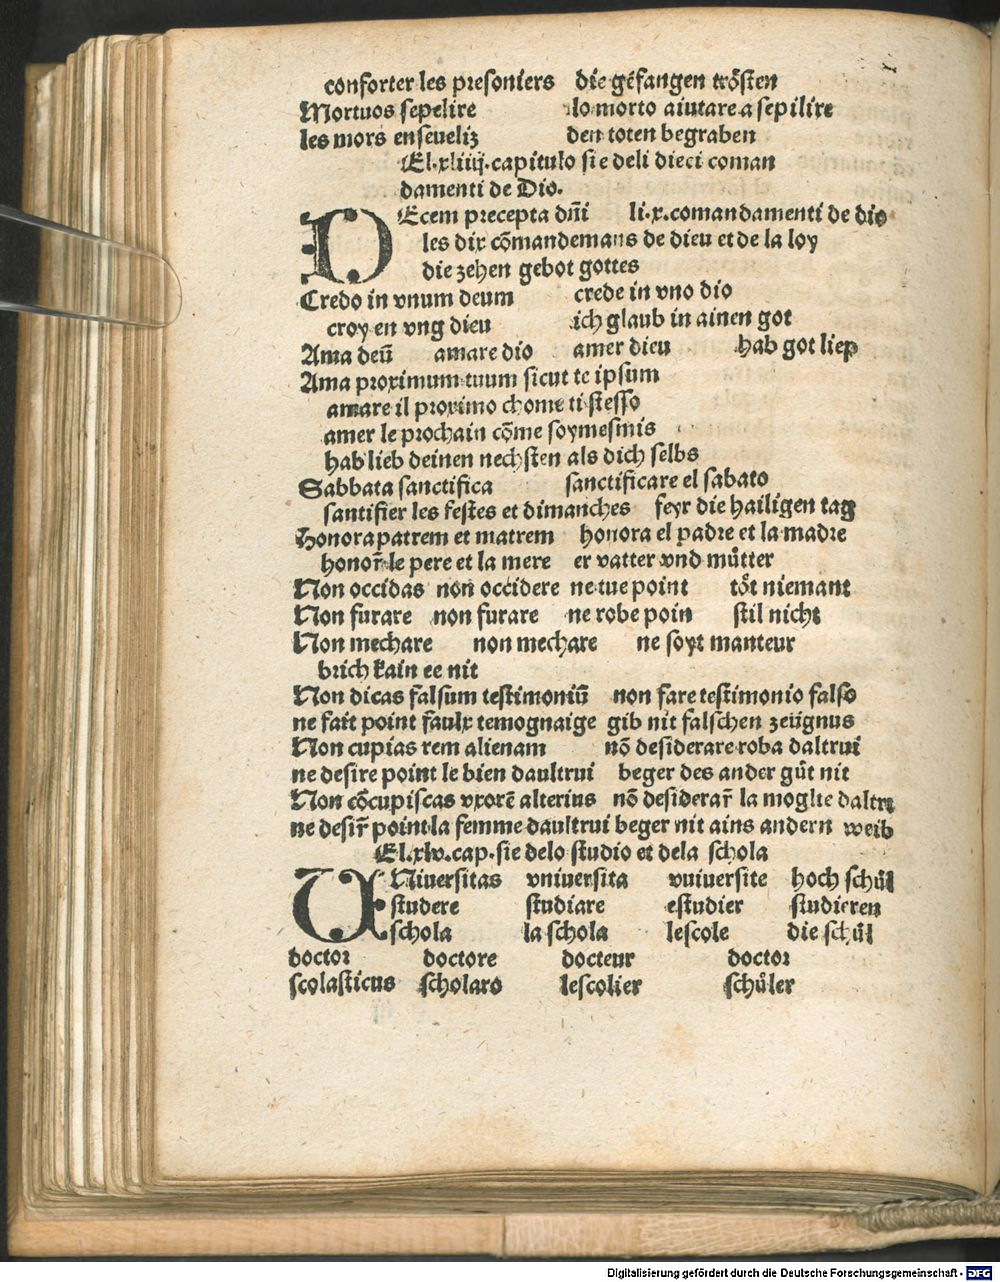 conforter les presoniers die gefangen trősten
Mortuos sepelire lo morto aiutare a sepilire
les mors enseueliz den toten begraben
El.xliiij.capitulo sie deli dieci coman
damenti de Dio.
DEcem precepta dñi li.x.comandamenti de dio
les dix cõmandemans de dieu et de la loy
die zehen gebot gottes
Credo in vnum deum crede in vno dio
croy en vng dieu ich glaub in ainen got
Ama deū amare dio amer dieu hab got liep
Ama proximum tuum sicut te ipsum
amare il proximo chome ti stesso
amer le prochain cõme soymesmis
hab lieb deinen nechsten als dich selbs
Sabbata sanctifica sanctificare el sabato
santifier les festes et dimanches feyr die hailigen tag
Honora patrem et matrem honora el padre et la madre
honor̃ le pere et la mere er vatter vnd můtter
Non occidas non occidere ne tue point tőt niemant
Non furare non furare ne robe poin stil nicht
Non mechare non mechare ne soyt manteur
brich kain ee nit
Non dicas falsum testimoniū non fare testimonio falso
ne fait point faulx temognaige gib nit falschen zeügnus
Non cupias rem alienam nõ desiderare roba daltrui
ne desire point le bien daultrui beger des ander gůt nit
Non cõcupiscas vxorẽ alterius nõ desiderar̃ la moglie daltru
ne desir̃ point la femme daultrui beger nit ains andern weib
El.xlv.cap.sie delo studio et dela schola
VNiuersitas vniuersita vniuersite hoch schůl
studere studiare estudier studieren
schola la schola lescole die schůl
doctor doctore docteur doctor
scolasticus scholaro lescolier schůler
Digitalisierung gefördert durch die Deutsche Forschungsgemeinschaft - DFG